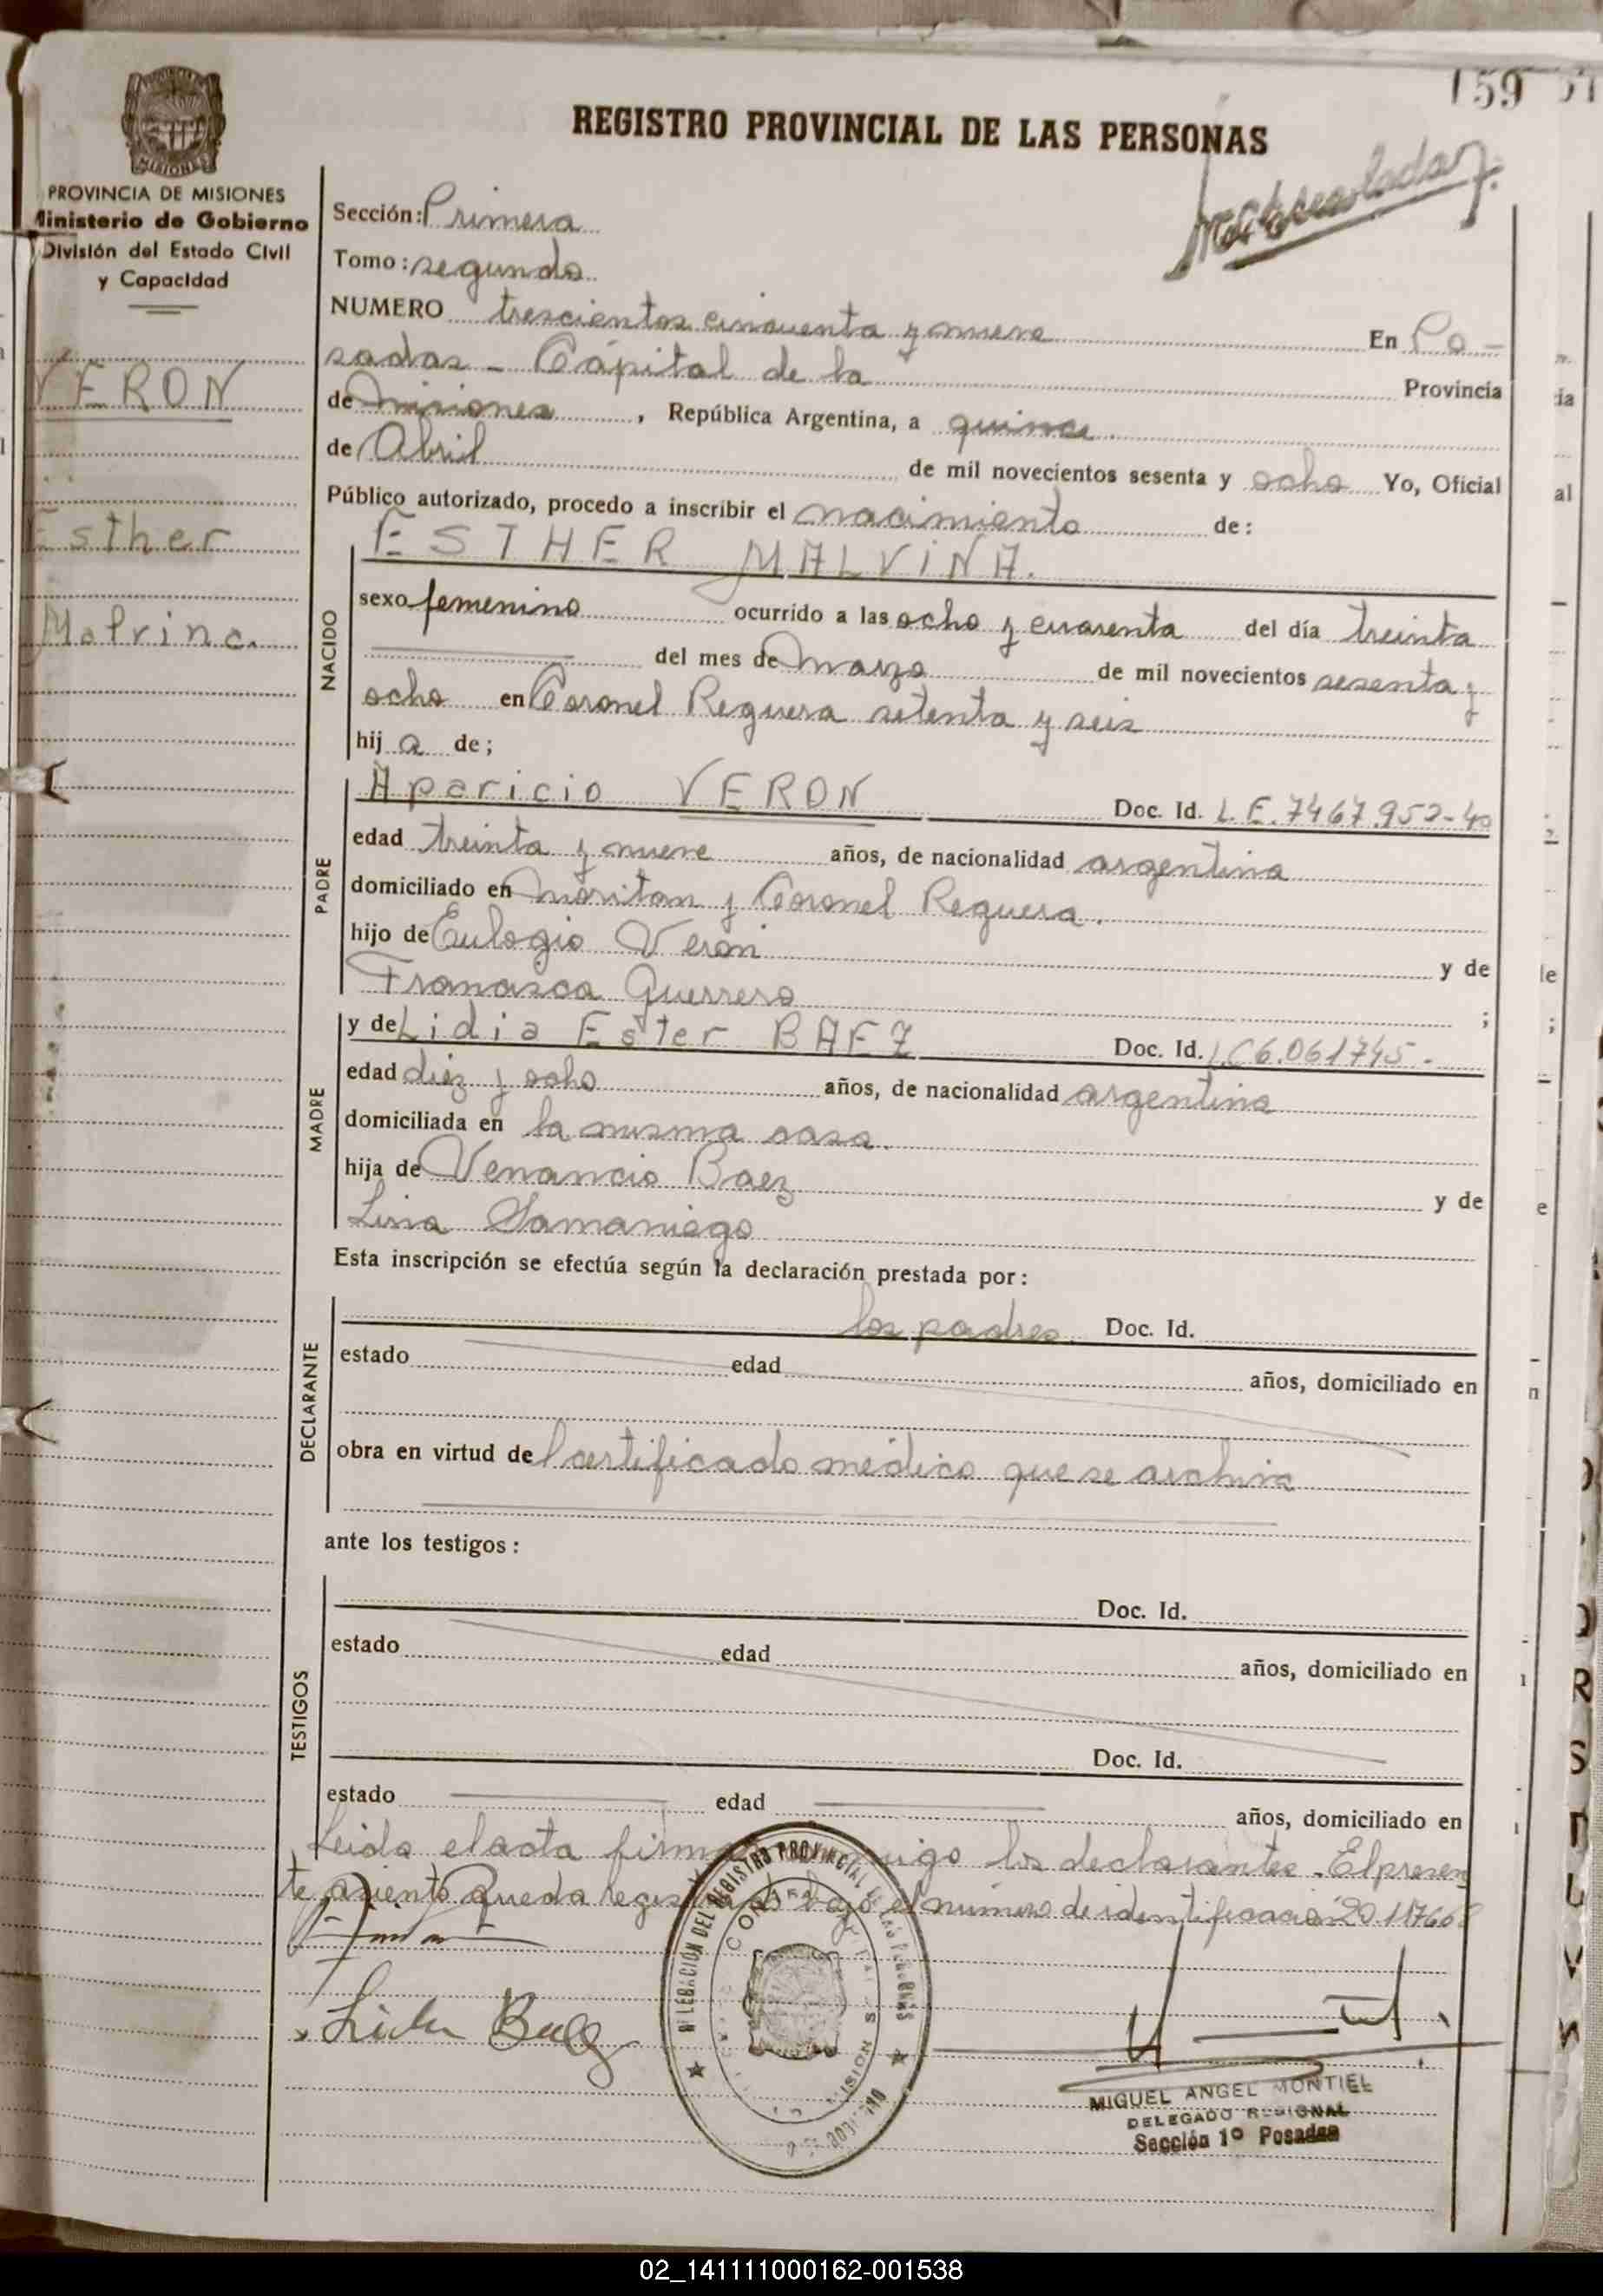 159
REGISTRO PROVINCIAL DE LAS PERSONAS
PROVINCIA DE MISIONES
Ministerio de Gobierno
División del Estado Civil
y Capacidad
VERON
Esther
Malvina.
Sección: Primera
Tomo: segundo
NUMERO trescientos cincuenta y nueve En Po-
sadas - Cápital de la Provincia
de Misiones, República Argentina, a quince
de Abril de mil novecientos sesenta y ocho Yo, Oficial
Público autorizado, procedo a inscribir el nacimiento de:
ESTHER MALVINA.
NACIDO
sexo femenino ocurrido a las ocho y cuarenta del día treinta
del mes de Marzo de mil novecientos sesenta y
ocho en Coronel Reguera setenta y seis
hij a de;
PADRE
Aparicio VERON Doc. Id. L.E. 7467.952-40
edad treinta y nueve años, de nacionalidad argentina
domiciliado en Moritan y Coronel Reguera.
hijo de Eulogio Veron y de
Francisca Guerrero ;
MADRE
y de Lidia Ester BAEZ Doc. Id. LC6.061745.-
edad diez y ocho años, de nacionalidad argentina
domiciliada en la misma casa.
hija de Venancio Baez y de
Lina Samaniego
Esta inscripción se efectúa según la declaración prestada por:
DECLARANTE
los padres. Doc. Id.
estado edad años, domiciliado en
obra en virtud del certificado médico que se archiva
ante los testigos:
TESTIGOS
Doc. Id.
estado edad años, domiciliado en
Doc. Id.
estado edad años, domiciliado en
Leida el acta los declarantes.- El presen
te asiento queda bajo el número de identificación
Lidia Baez
DELEGACIÓN DEL REGISTRO PROVINCIAL DE LAS PERSONAS
MIGUEL ANGEL MONTIEL
DELEGADO REGIONAL
Sección 1º Posadas
02_141111000162-001538